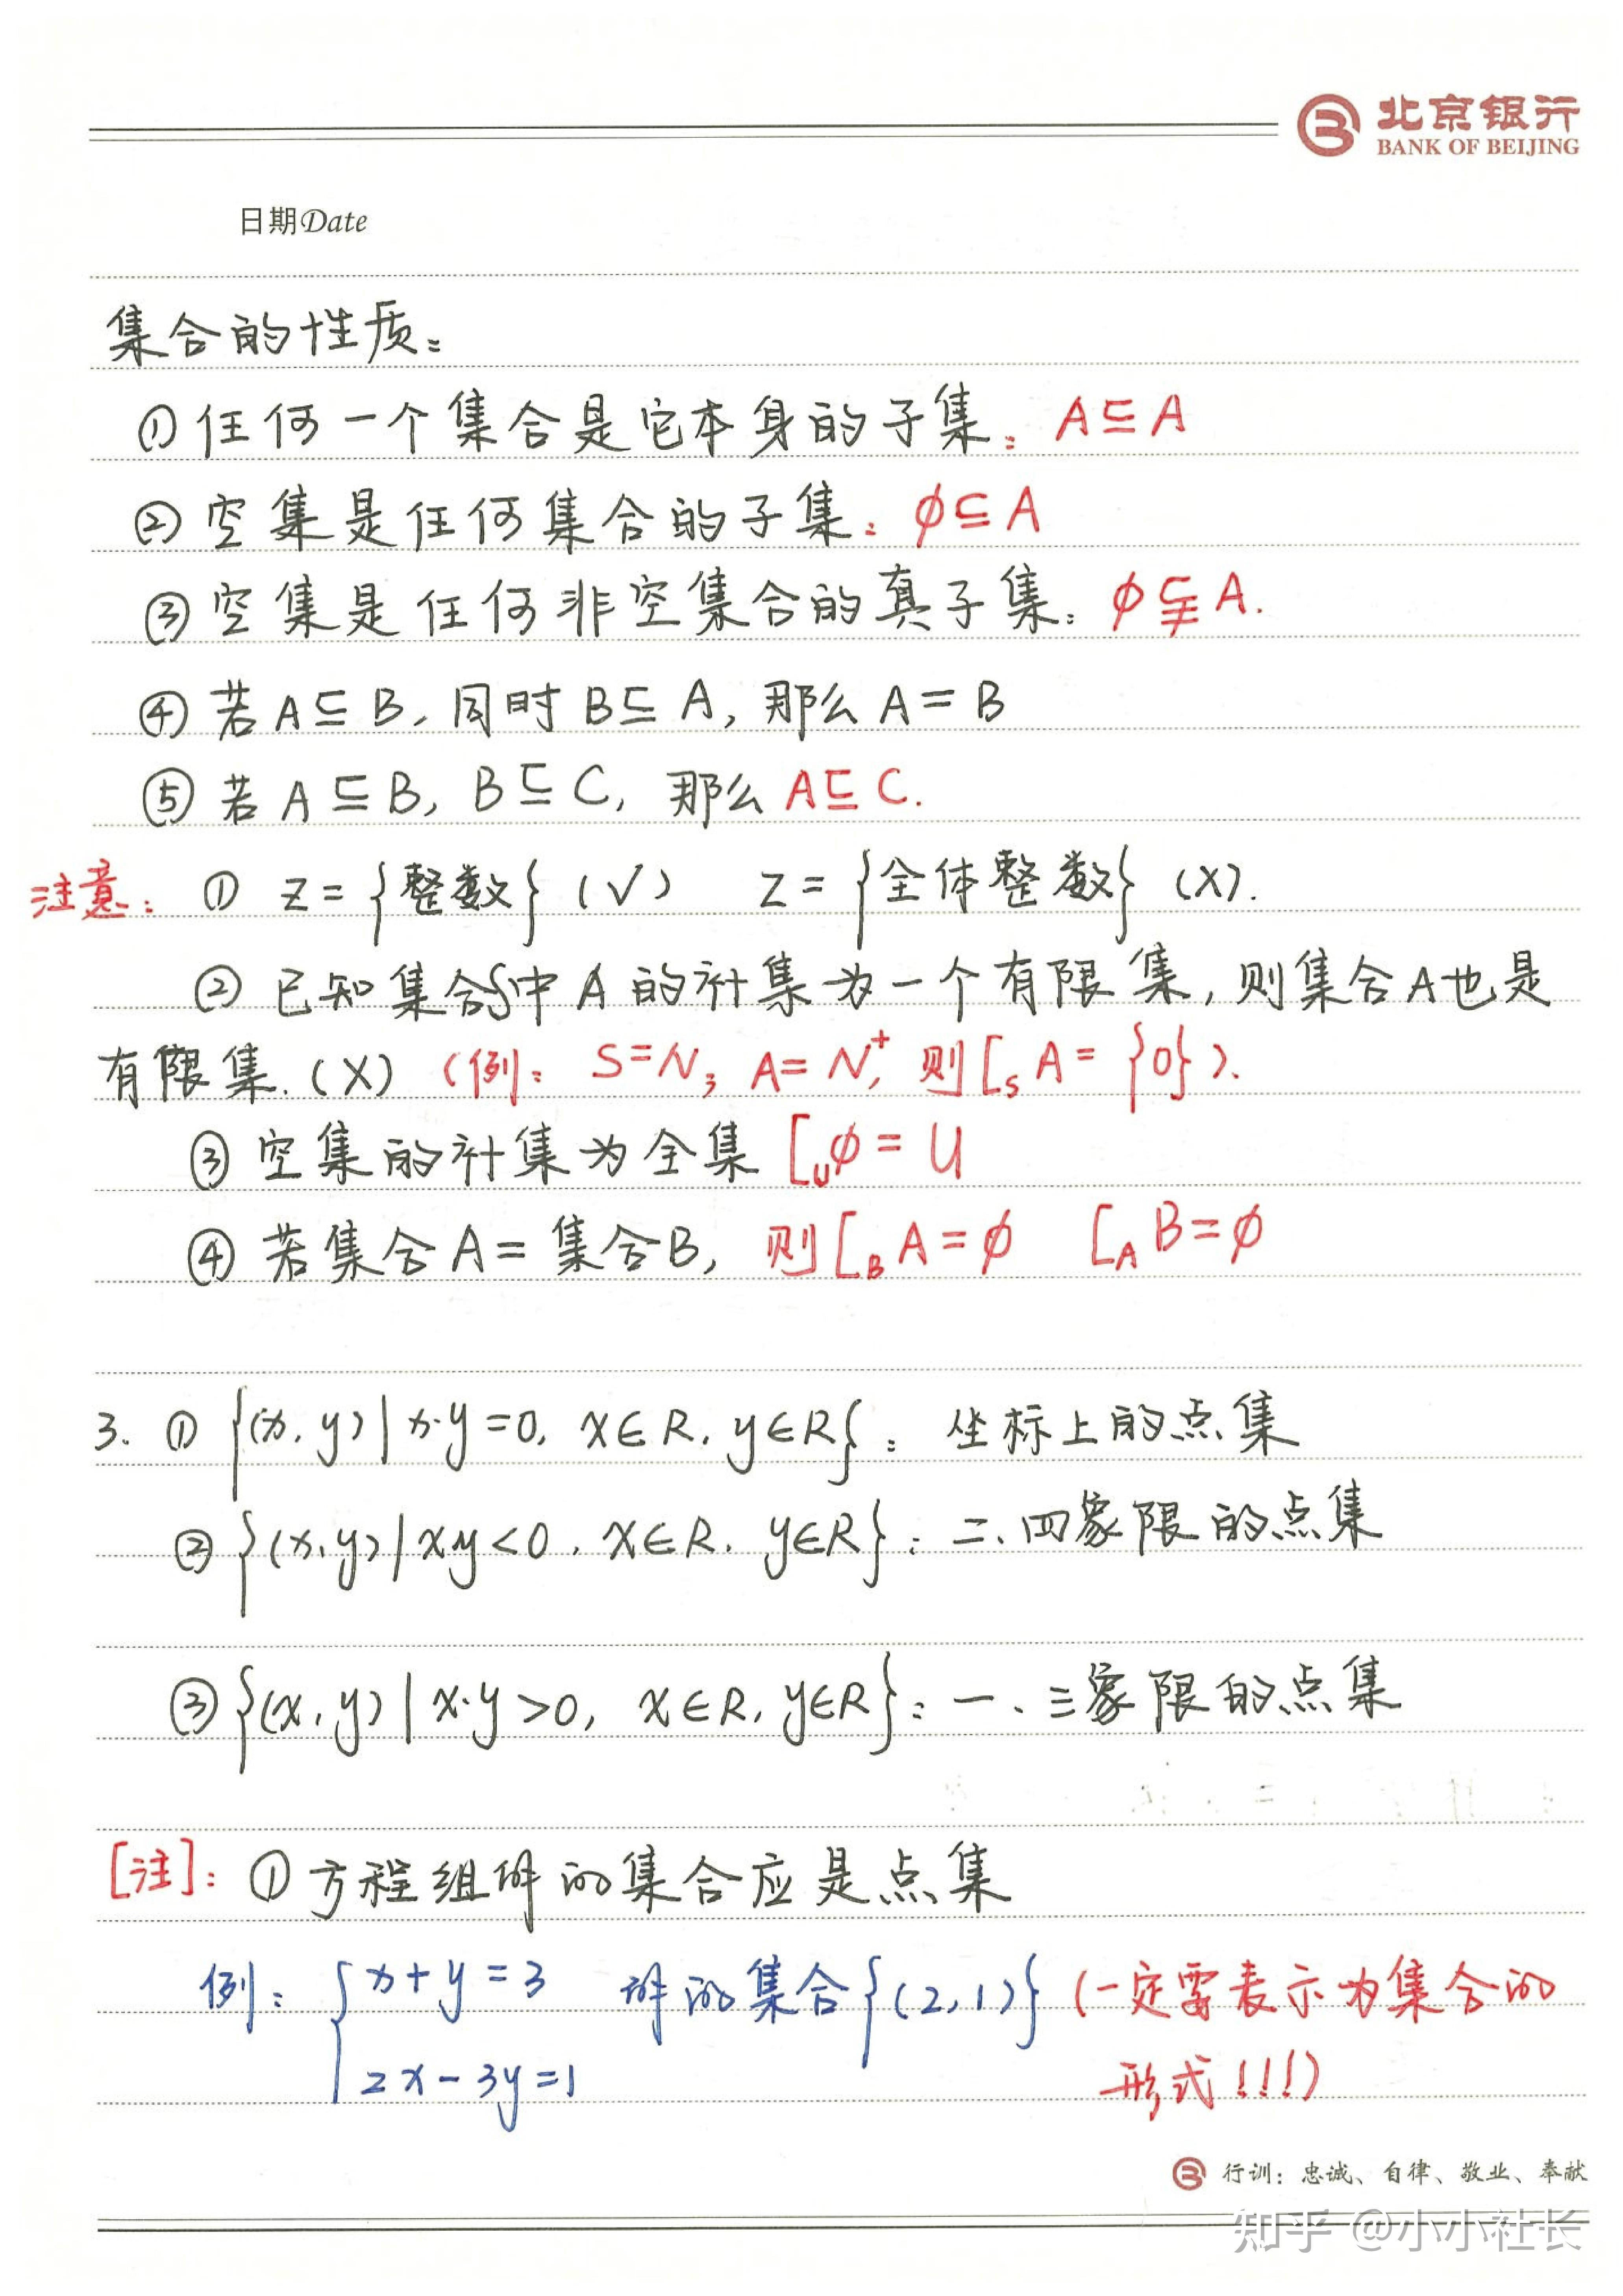 北京银行
BANK OF BEIJING
日期Date
集合的性质:
①任何一个集合是它本身的子集: A⊆A
②空集是任何集合的子集: ϕ⊆A
③空集是任何非空集合的真子集: ϕ⫋A.
④若A⊆B, 同时B⊆A, 那么A=B
⑤若A⊆B, B⊆C, 那么A⊆C.
注意: ① Z={整数} (√) Z={全体整数} (X).
②已知集合S中A的补集为一个有限集, 则集合A也是
有限集. (X) (例: S=N; A=N⁺, 则[ₛA={0}).
③空集的补集为全集 [ᵤϕ=U
④若集合A=集合B, 则[_B A=ϕ [_A B=ϕ
3. ①{(x,y)|x·y=0, x∈R, y∈R}: 坐标上的点集
②{(x,y)|xy<0, x∈R, y∈R}: 二、四象限的点集
③{(x,y)|x·y>0, x∈R, y∈R}: 一、三象限的点集
[注]: ①方程组解的集合应是点集
例: {x+y=3 解的集合{(2,1)} (一定需表示为集合的
2x-3y=1 形式!!!)
行训: 忠诚、自律、敬业、奉献
知乎 @小小社长